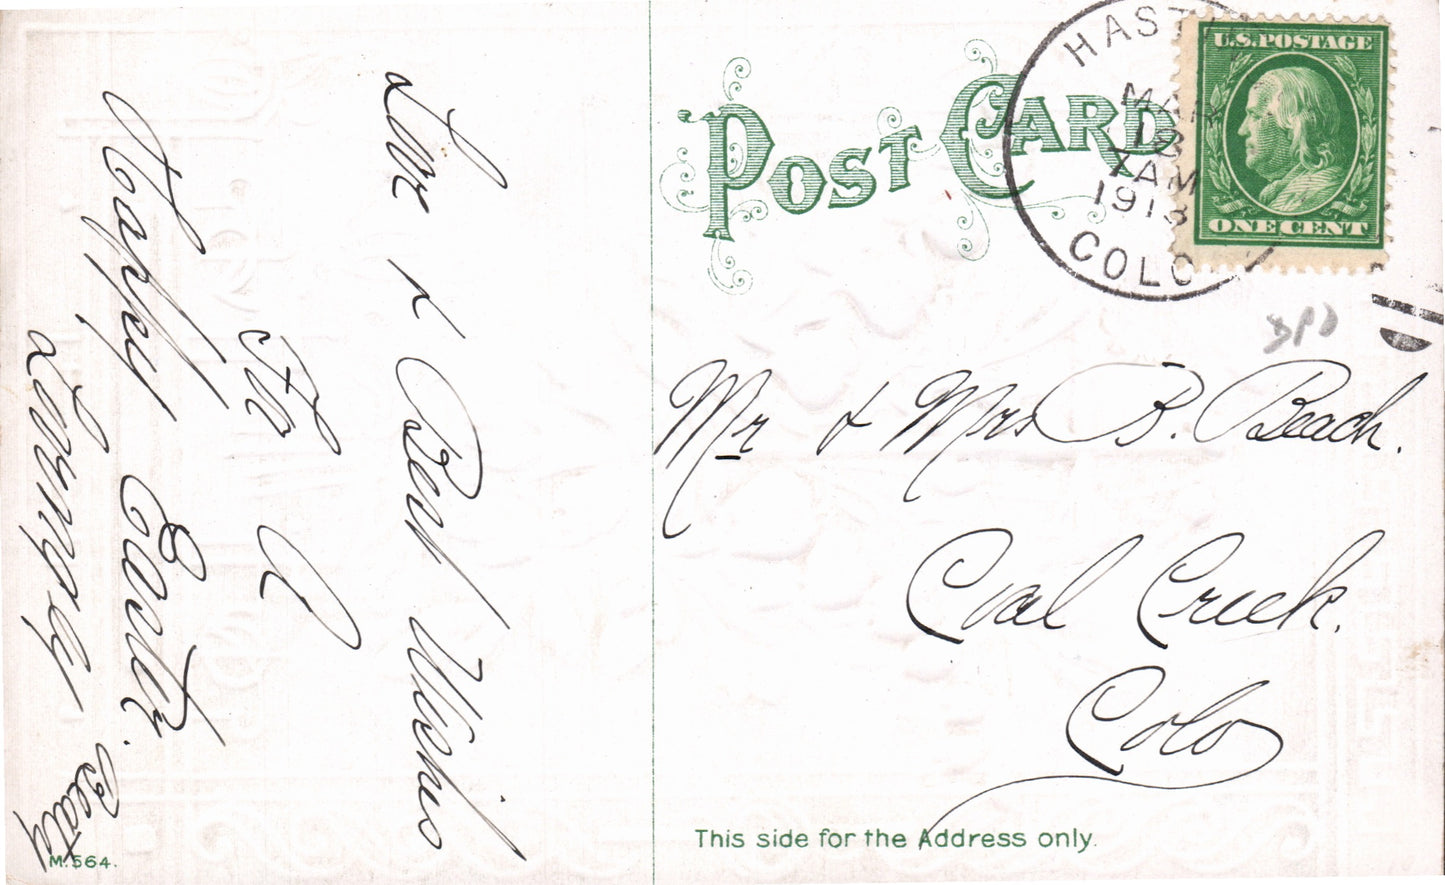 Love & Best Wishes
For
A
Happy Easter.
Lovingly
Beaty
M. 564.
POST CARD
HAST
MAR
7 AM
1913
COLO
U.S. POSTAGE
ONE CENT
Mr & Mrs B. Beach.
Coal Creek.
Colo
This side for the Address only.